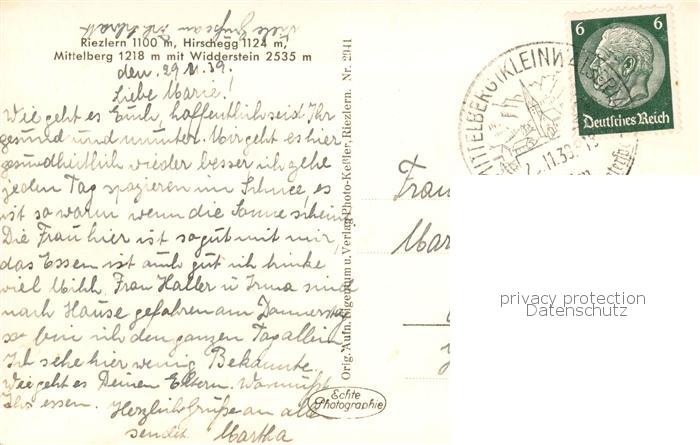 Viele Grüße an
Riezlern 1100 m, Hirschegg 1124 m,
Mittelberg 1218 m mit Widderstein 2535 m
den 29 39.
Liebe Marie!
Wie geht es Euch, hoffentlich seid Ihr
gesund und munter. Mir geht es hier
gesundheitlich wieder besser ich gehe
jeden Tag spazieren im Schnee, es
ist so warm wenn die Sonne scheint
Die Frau hier ist so gut mit mir,
das Essen ist auch gut ich trinke
viel Milch. Frau Haller u Irma sind
nach Hause gefahren am Donnerstag
so bin ich den ganzen Tag allein
Ich sehe hier wenig Bekannte.
Wie geht es Deinen Eltern. Was müßt
Ihr essen. Herzliche Grüße an alle
sendet Martha
Orig. Aufn. Eigentum u. Verlag Photo-Keßler, Riezlern. Nr. 2941
Echte
Photographie
MITTELBERG (KLEINWALSERTAL)
11.39
6 6
Deutsches Reich
Frau
Mar
privacy protection
Datenschutz